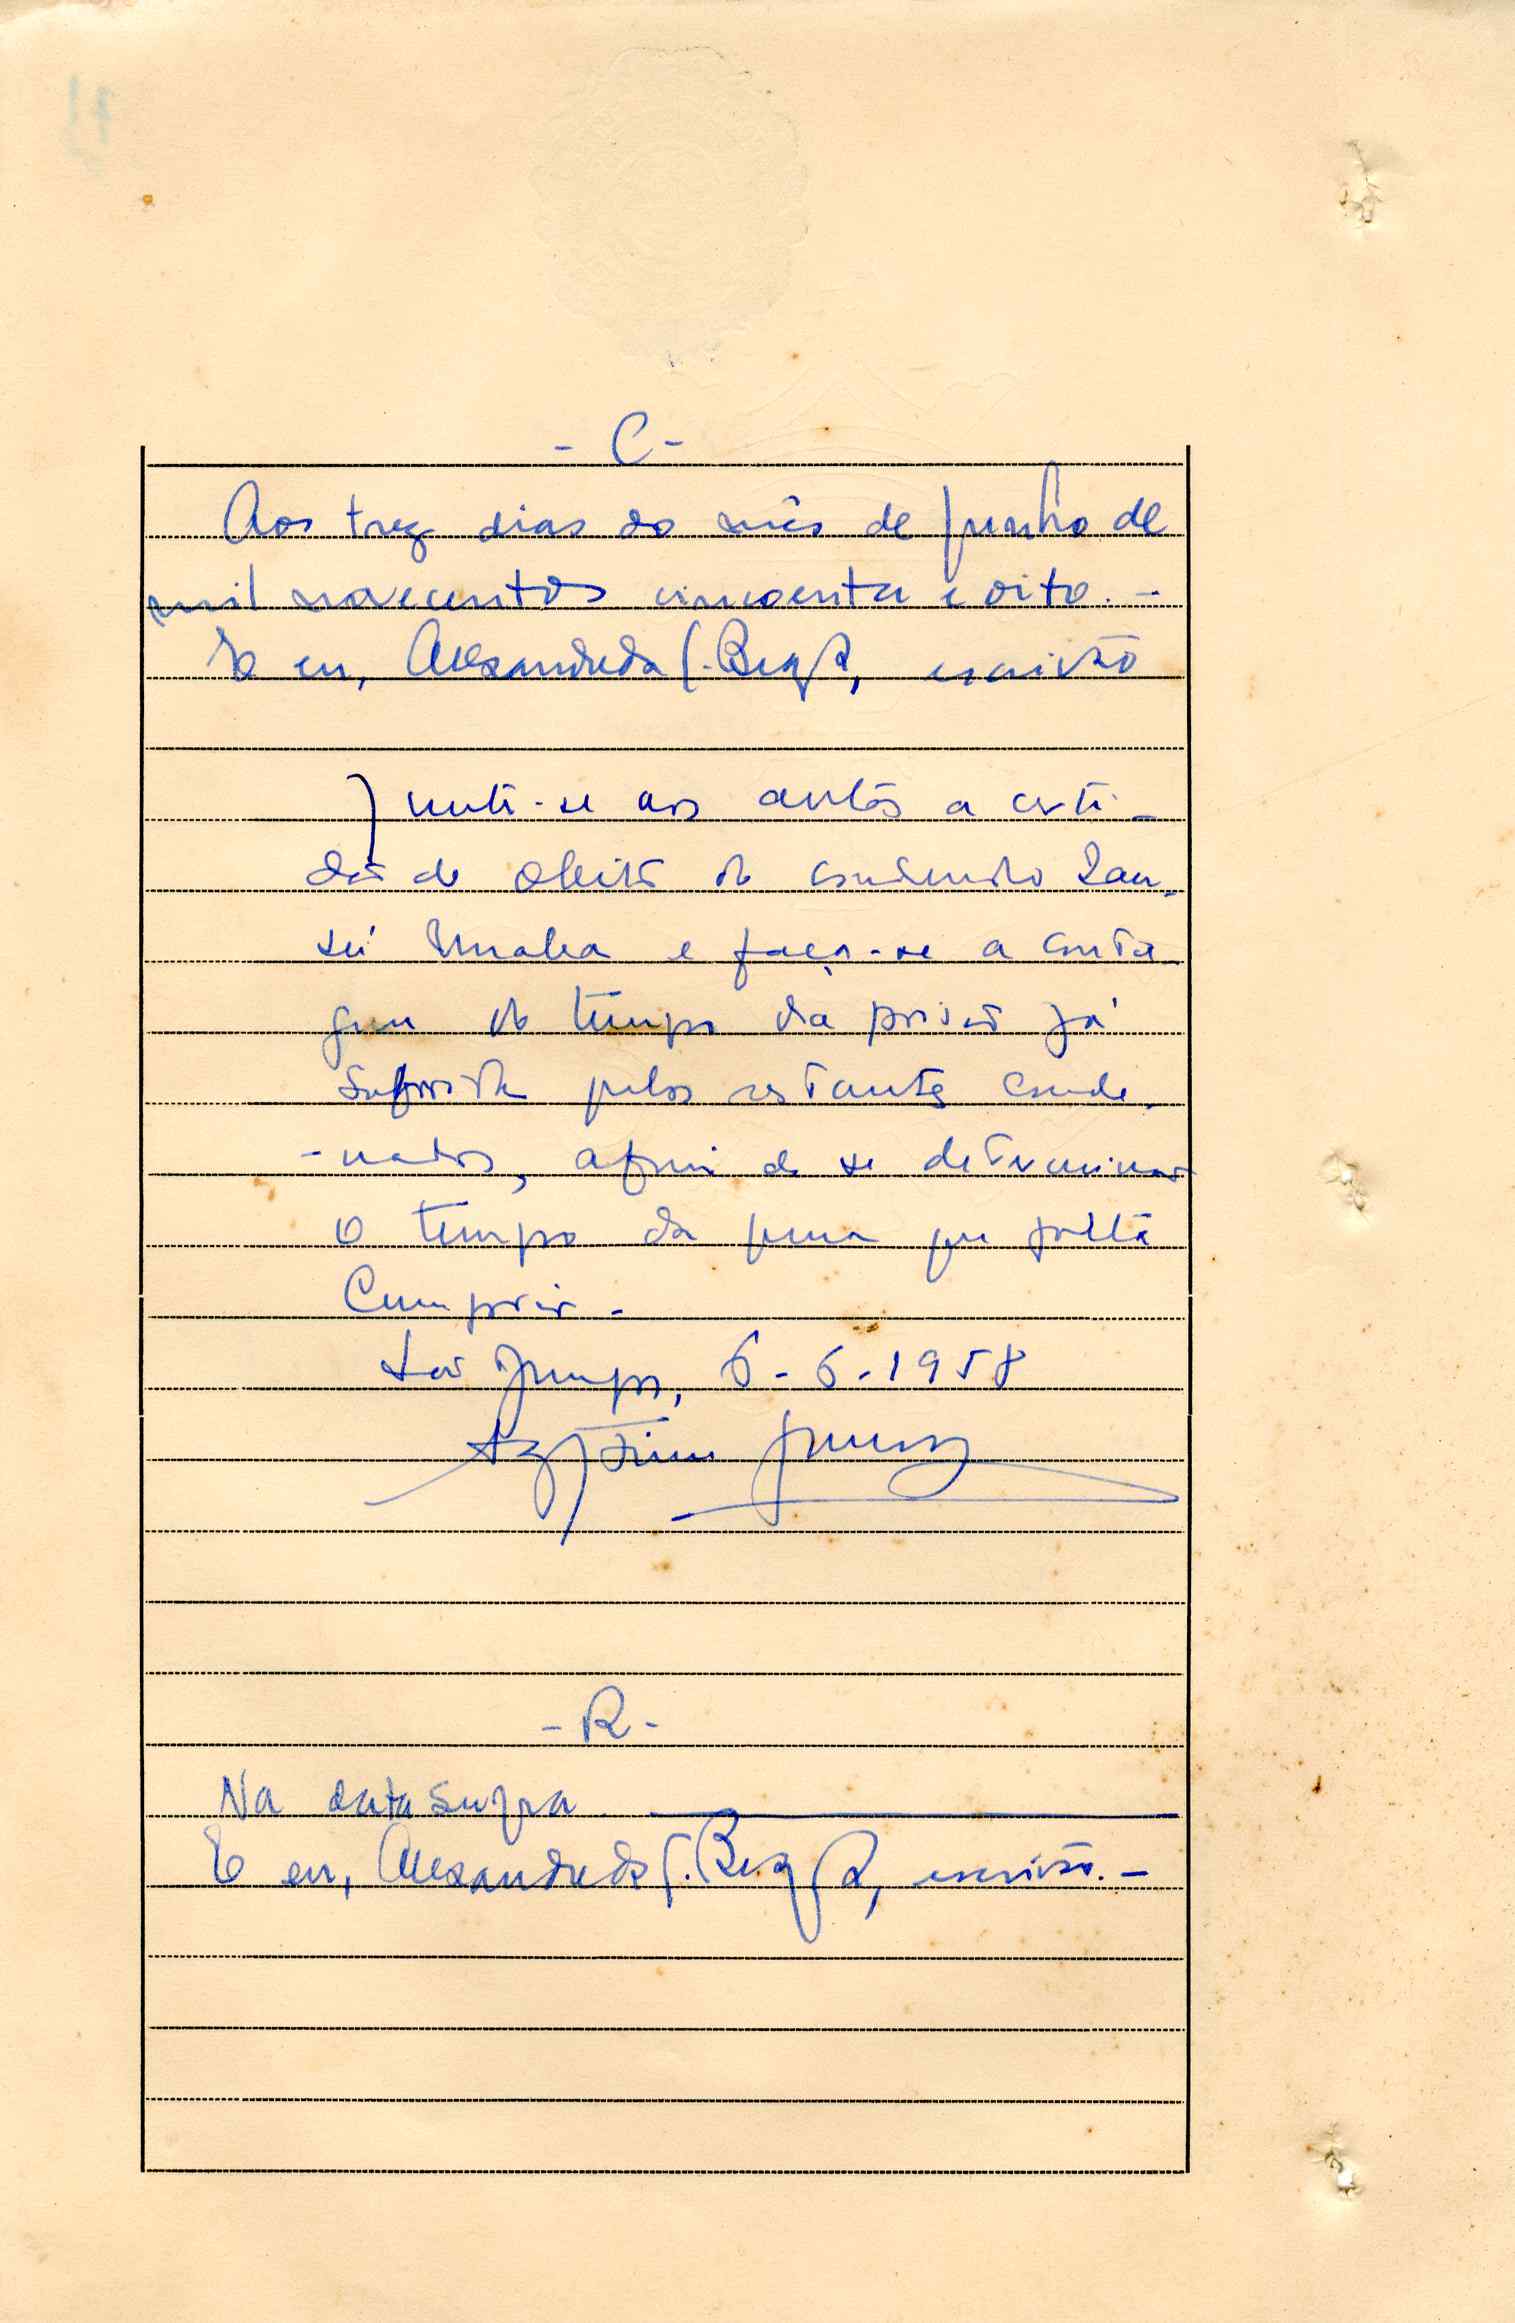 - C -
Aos trez dias do mês de Junho de
mil novecentos cincoenta e oito. -
E eu, Alexandre da S. Beça, escrivão
Junte-se aos autos a certi-
dão de obito do condenado Ran-
sei Umaka e faça-se a conta-
gem do tempo da prisão já
sofrida pelos restantes conde-
-nados, afim de se determinar
o tempo da pena que falta
Cumprir -
6-6-1958
- R -
Na data supra.
E eu, Alexandre da S. Beça, escrivão. -